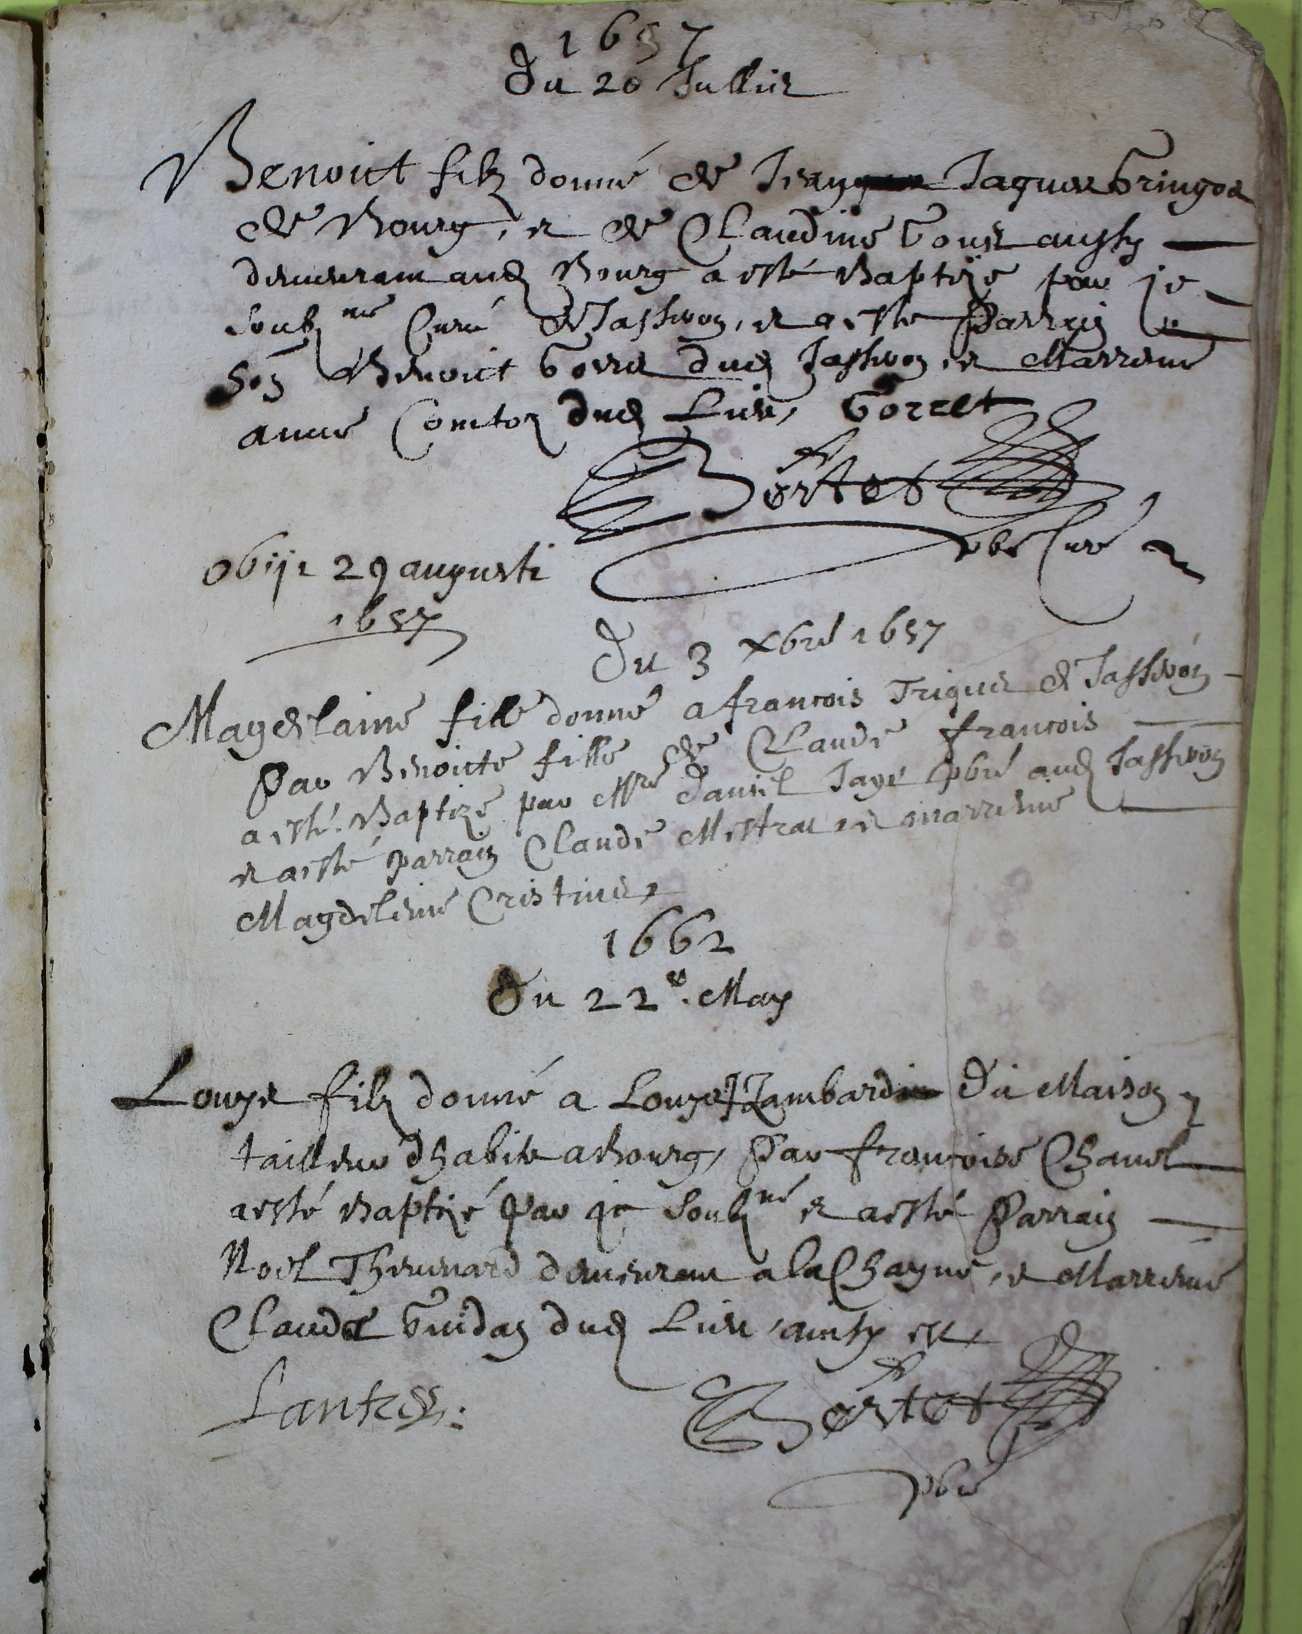 1657
Du 20 Jullie
Benoict filz donné de Jean Jaques Gringoz
de Bourg, et de Claudine Goue aussy
demeurant aud Bourg a esté Baptizé par je
soubz né Curé de Jasseron, et a esté Parrain
Benoict Gorre dud Jasseron et Marrene
anne Comtoz dud Lieu, Gorret
pbre Curé
Obiit 29 augusti
1657
Du 3 xbre 1657
Magdelaine fille donné a francois Trique de Jasseron
Par Benoicte fille de Claude francois
a esté Baptizé par Mre Daniel Jayé pbre aud Jasseron
et a esté parrain Claude Mestrat et marrenne
Magdeleine Cristine
1662
Du 22e May
Louys filz donné a Louys Lambard Du Maison
tailleur dhabitz a Bourg, Par francoise Chanel
a esté Baptizé Par je soubz né et a esté Parrain
Noel Thevenard demeurant a la Chayne, et Marrene
Claude Guidan dud Lieu, ainsy est,
pbre